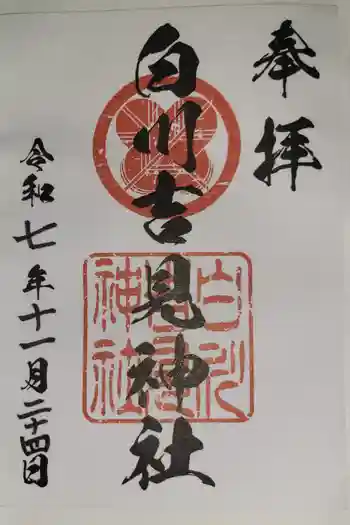 奉拝
白川吉見神社
令和七年十一月二十四日